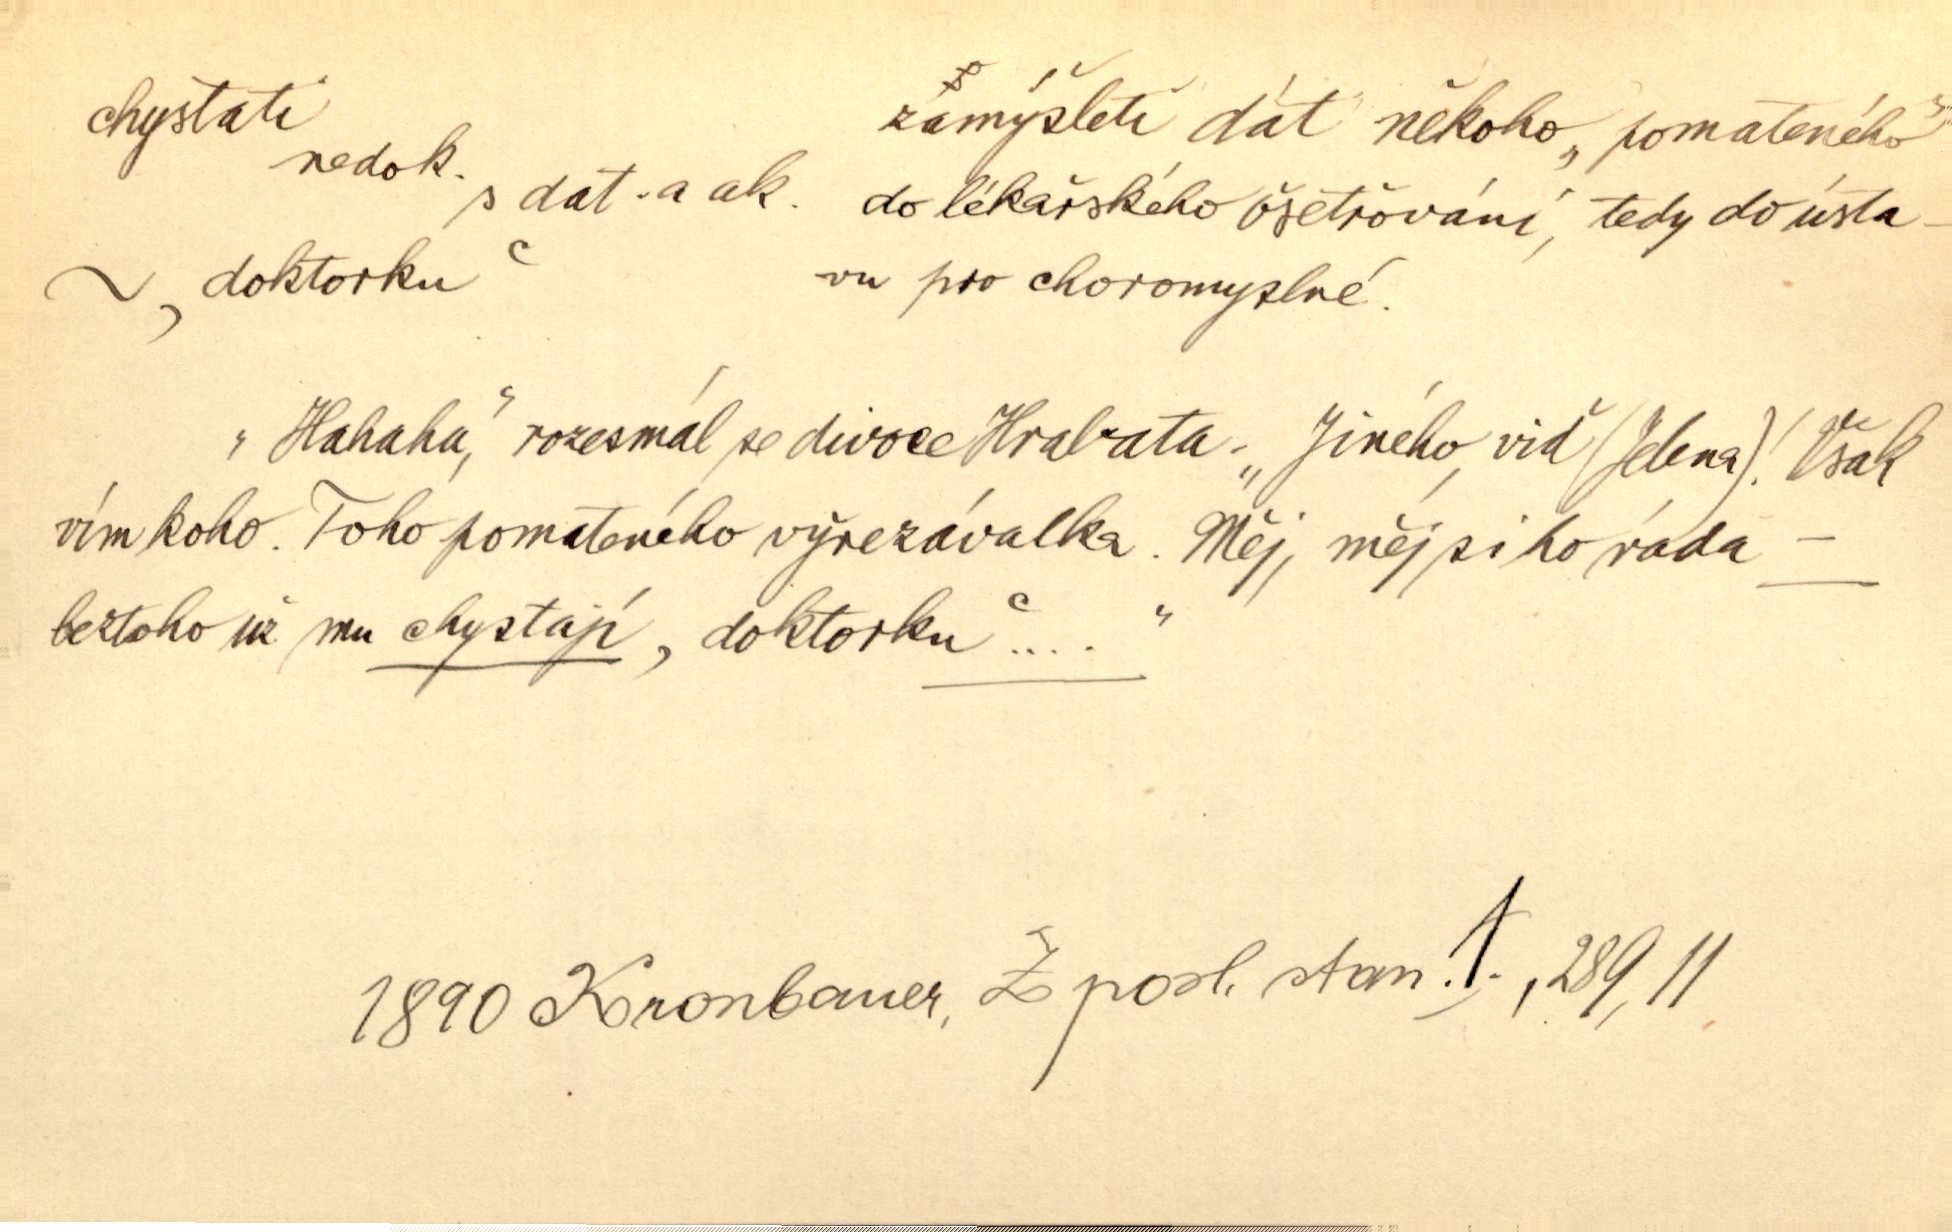 chystati
nedok.
s dat. a ak.
~ ‚doktorku‘
zamýšleti dát někoho „pomateného“
do lékařského ošetřování, tedy do ústa-
vu pro choromyslné.
„Hahaha,“ rozesmál se divoce Hrabata. „Jiného, viď (Jelena)! Však
vím koho. Toho pomateného vyřezávalka. Měj, měj si ho ráda –
beztoho už mu chystají ‚doktorku‘ ...."
1890 Kronbauer, Z posl. stan. 1., 289, 11